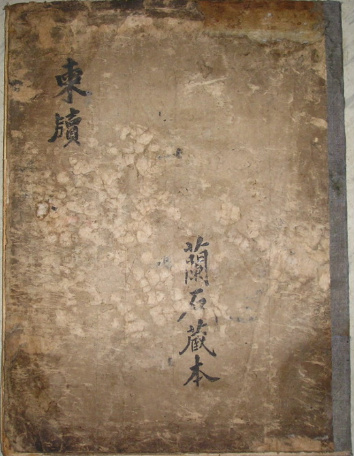 柬牘
蘭石藏本